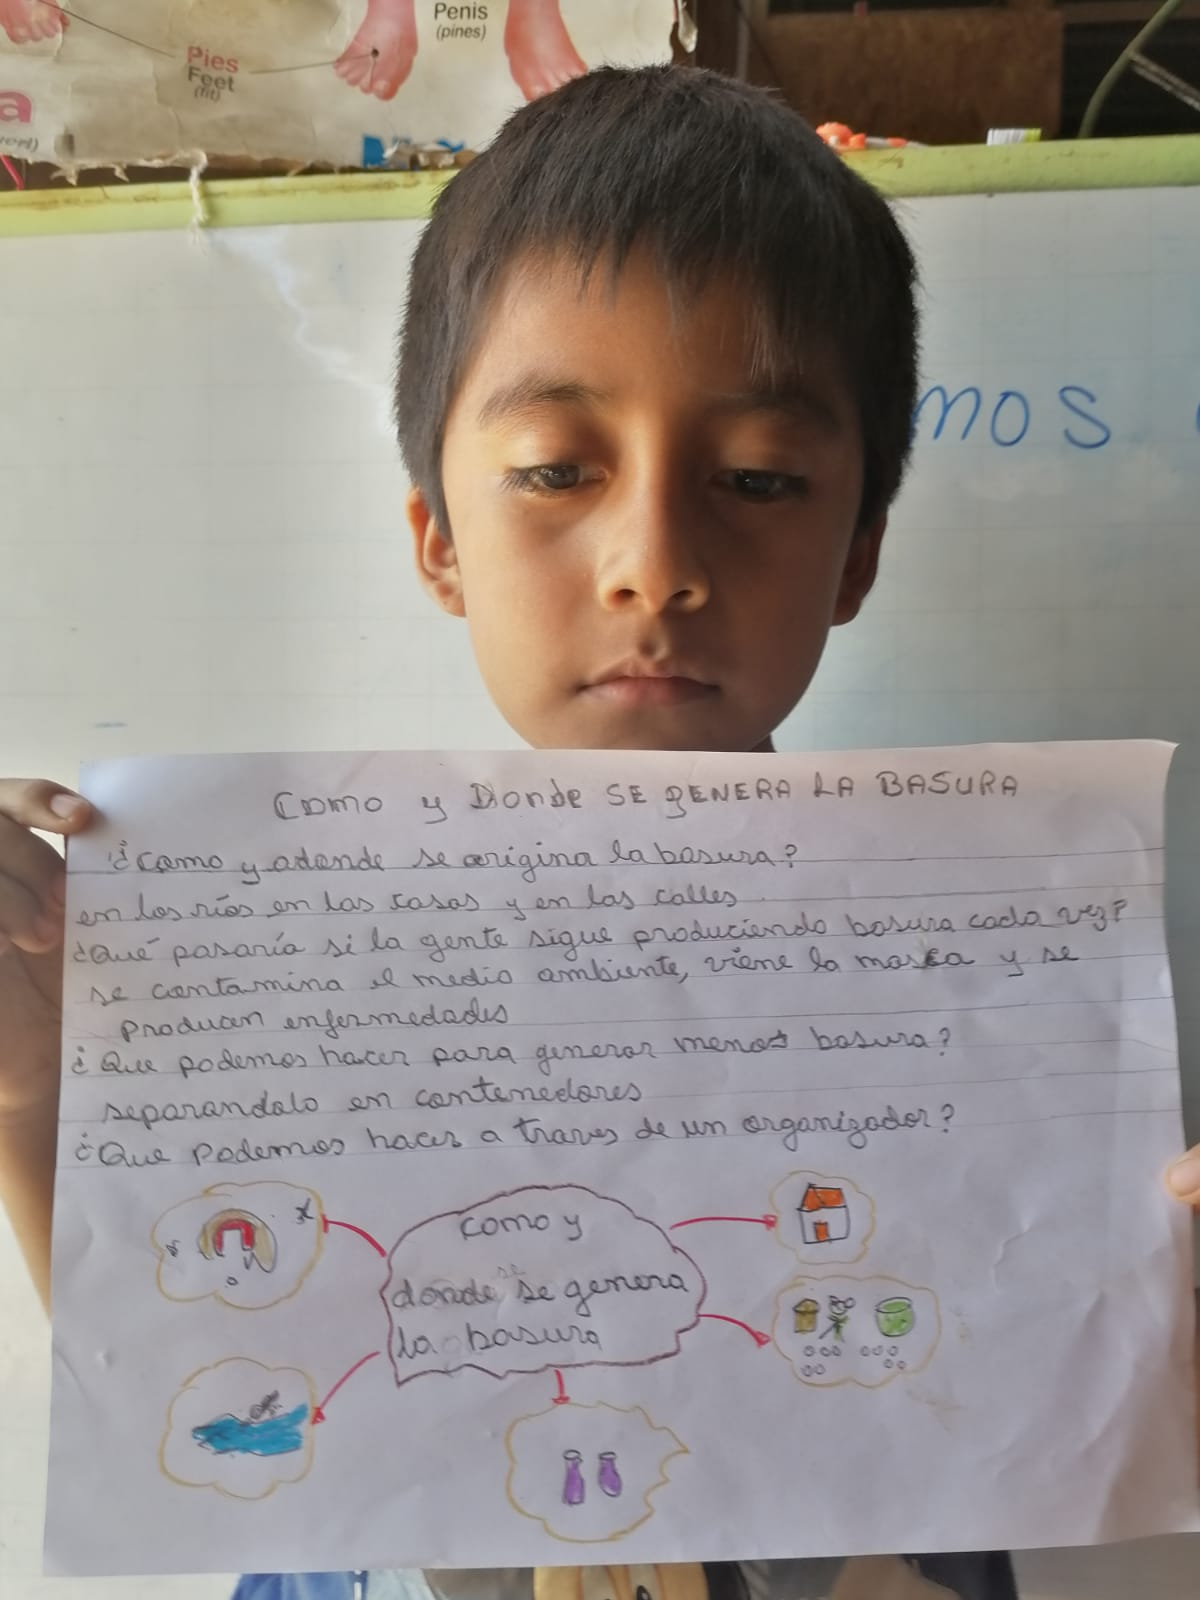 Penis
(pines)
Pies
Feet
(fit)
a
mos
Como y Donde SE GENERA LA BASURA
¿como y adonde se origina la basura?
en los ríos en las casas y en las calles.
¿Qué pasaría si la gente sigue produciendo basura cada vez?
se contamina el medio ambiente, viene la mosca y se
producen enfermedades
¿Que podemos hacer para generar menos basura?
separandolo en contenedores
¿Que Podemos hacer a traves de un organizador?
como y
se
donde se genera
la basura